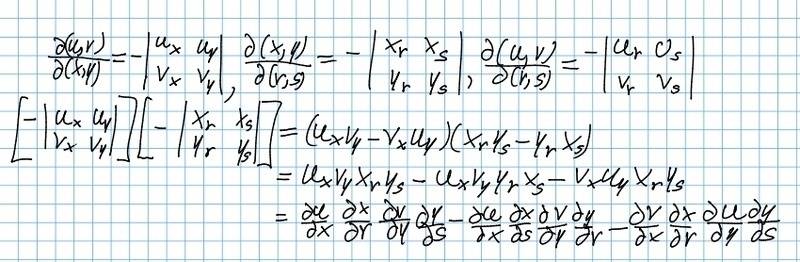 ∂(u,v)/∂(x,y) = -|u_x u_y; v_x v_y|, ∂(x,y)/∂(r,s) = -|x_r x_s; y_r y_s|, ∂(u,v)/∂(r,s) = -|u_r u_s; v_r v_s|
[-|u_x u_y; v_x v_y|][-|x_r x_s; y_r y_s|] = (u_x v_y - v_x u_y)(x_r y_s - y_r x_s)
= u_x v_y x_r y_s - u_x v_y y_r x_s - v_x u_y x_r y_s
= ∂u/∂x ∂x/∂r ∂v/∂y ∂y/∂s - ∂u/∂x ∂x/∂s ∂v/∂y ∂y/∂r - ∂v/∂x ∂x/∂r ∂u/∂y ∂y/∂s